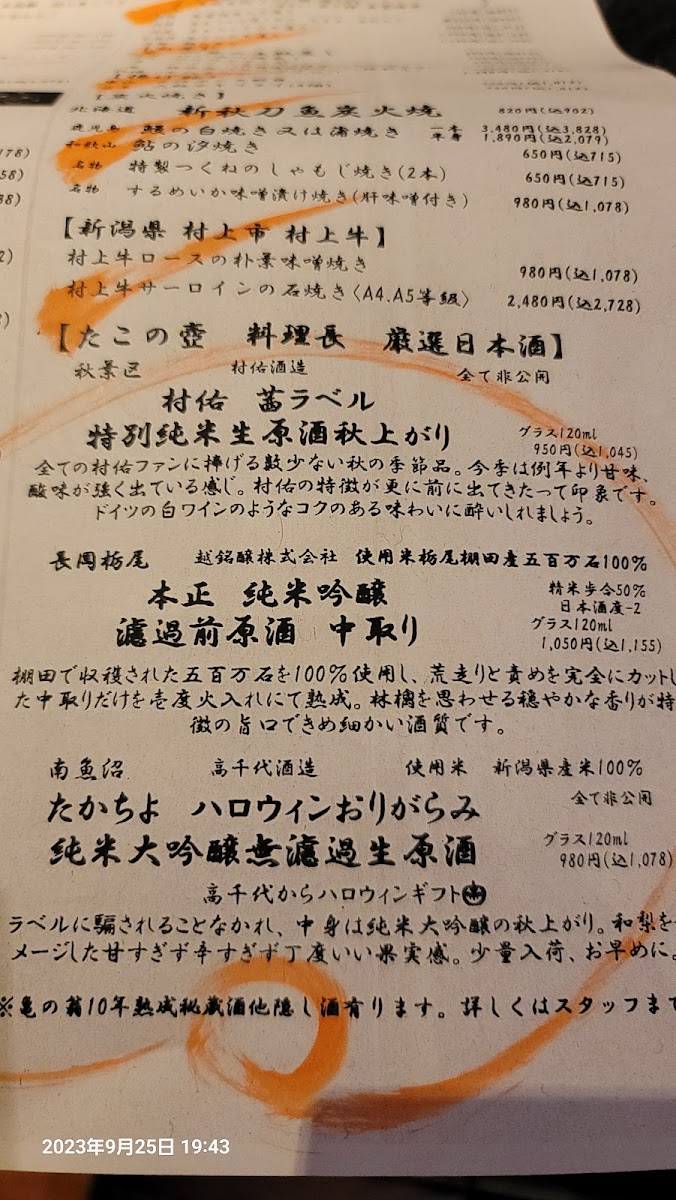 北海道 新秋刀魚炭火焼 820円(込902)
鹿児島 鰻の白焼き又は蒲焼き 一本 3,480円(込3,828)
半身 1,890円(込2,079)
和歌山 鮎の汐焼き 650円(込715)
名物 特製つくねのしゃもじ焼き(2本) 650円(込715)
名物 するめいか味噌漬け焼き(肝味噌付き) 980円(込1,078)
【新潟県 村上市 村上牛】
村上牛ロースの朴葉味噌焼き 980円(込1,078)
村上牛サーロインの石焼き〈A4.A5等級〉 2,480円(込2,728)
【たこの壺 料理長 厳選日本酒】
秋景区 村佑酒造 全て非公開
村佑 茜ラベル
特別純米生原酒秋上がり グラス120ml
950円(込1,045)
全ての村佑ファンに捧げる数少ない秋の季節品。今季は例年より甘味、
酸味が強く出ている感じ。村佑の特徴が更に前に出てきたって印象です。
ドイツの白ワインのようなコクのある味わいに酔いしれましょう。
長岡栃尾 越銘醸株式会社 使用米栃尾棚田産五百万石100%
本正 純米吟醸 精米歩合50%
日本酒度-2
濾過前原酒 中取り グラス120ml
1,050円(込1,155)
棚田で収穫された五百万石を100%使用し、荒走りと責めを完全にカットし
た中取りだけを壱度火入れにて熟成。林檎を思わせる穏やかな香りが特
徴の旨口できめ細かい酒質です。
南魚沼 高千代酒造 使用米 新潟県産米100%
たかちよ ハロウィンおりがらみ 全て非公開
純米大吟醸無濾過生原酒 グラス120ml
980円(込1,078)
高千代からハロウィンギフト🎃
ラベルに騙されることなかれ、中身は純米大吟醸の秋上がり。和梨を
メージした甘すぎず辛すぎず丁度いい果実感。少量入荷、お早めに。
※亀の翁10年熟成秘蔵酒他隠し酒有ります。詳しくはスタッフまで
2023年9月25日 19:43